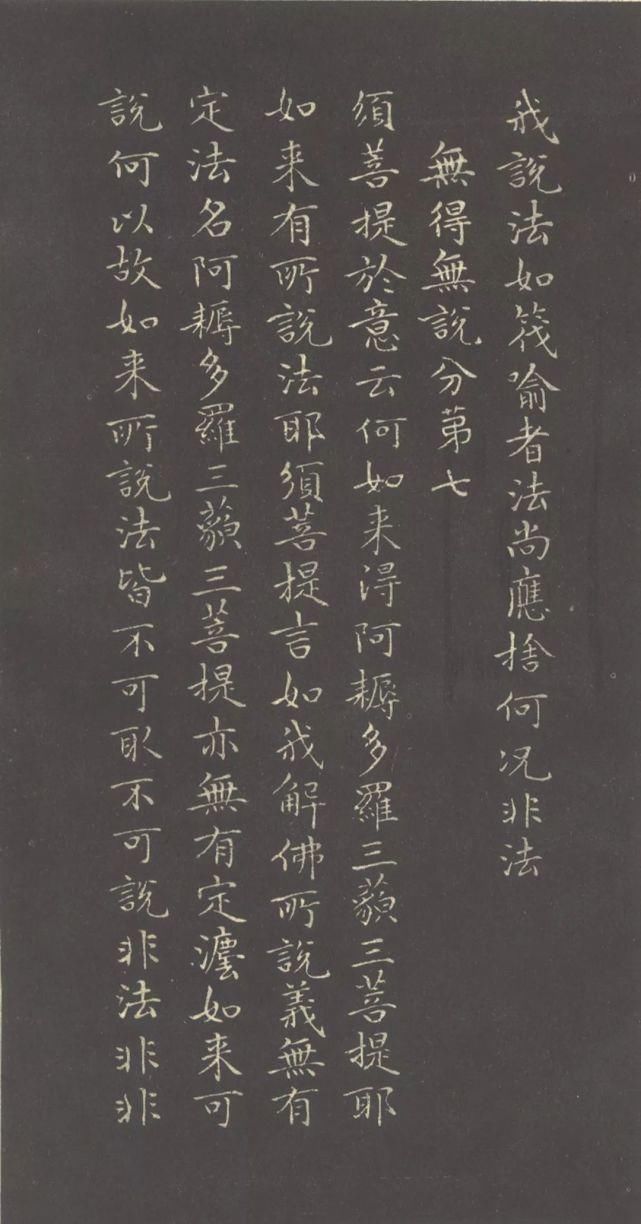 我說法如筏喻者法尚應捨何况非法
無得無説分第七
須菩提於意云何如来淂阿耨多羅三藐三菩提耶
如来有所說法耶須菩提言如我解佛所說義無有
定法名阿耨多羅三藐三菩提亦無有定灋如来可
說何以故如来所說法皆不可取不可說非法非非